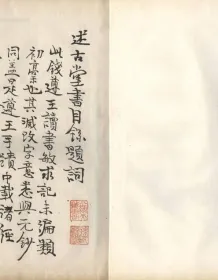 述古堂書目錄題詞
此錢遵王讀書敏求記未編類
初稾也其減改字意悉與元鈔
同蓋是遵王手蹟中載諸經